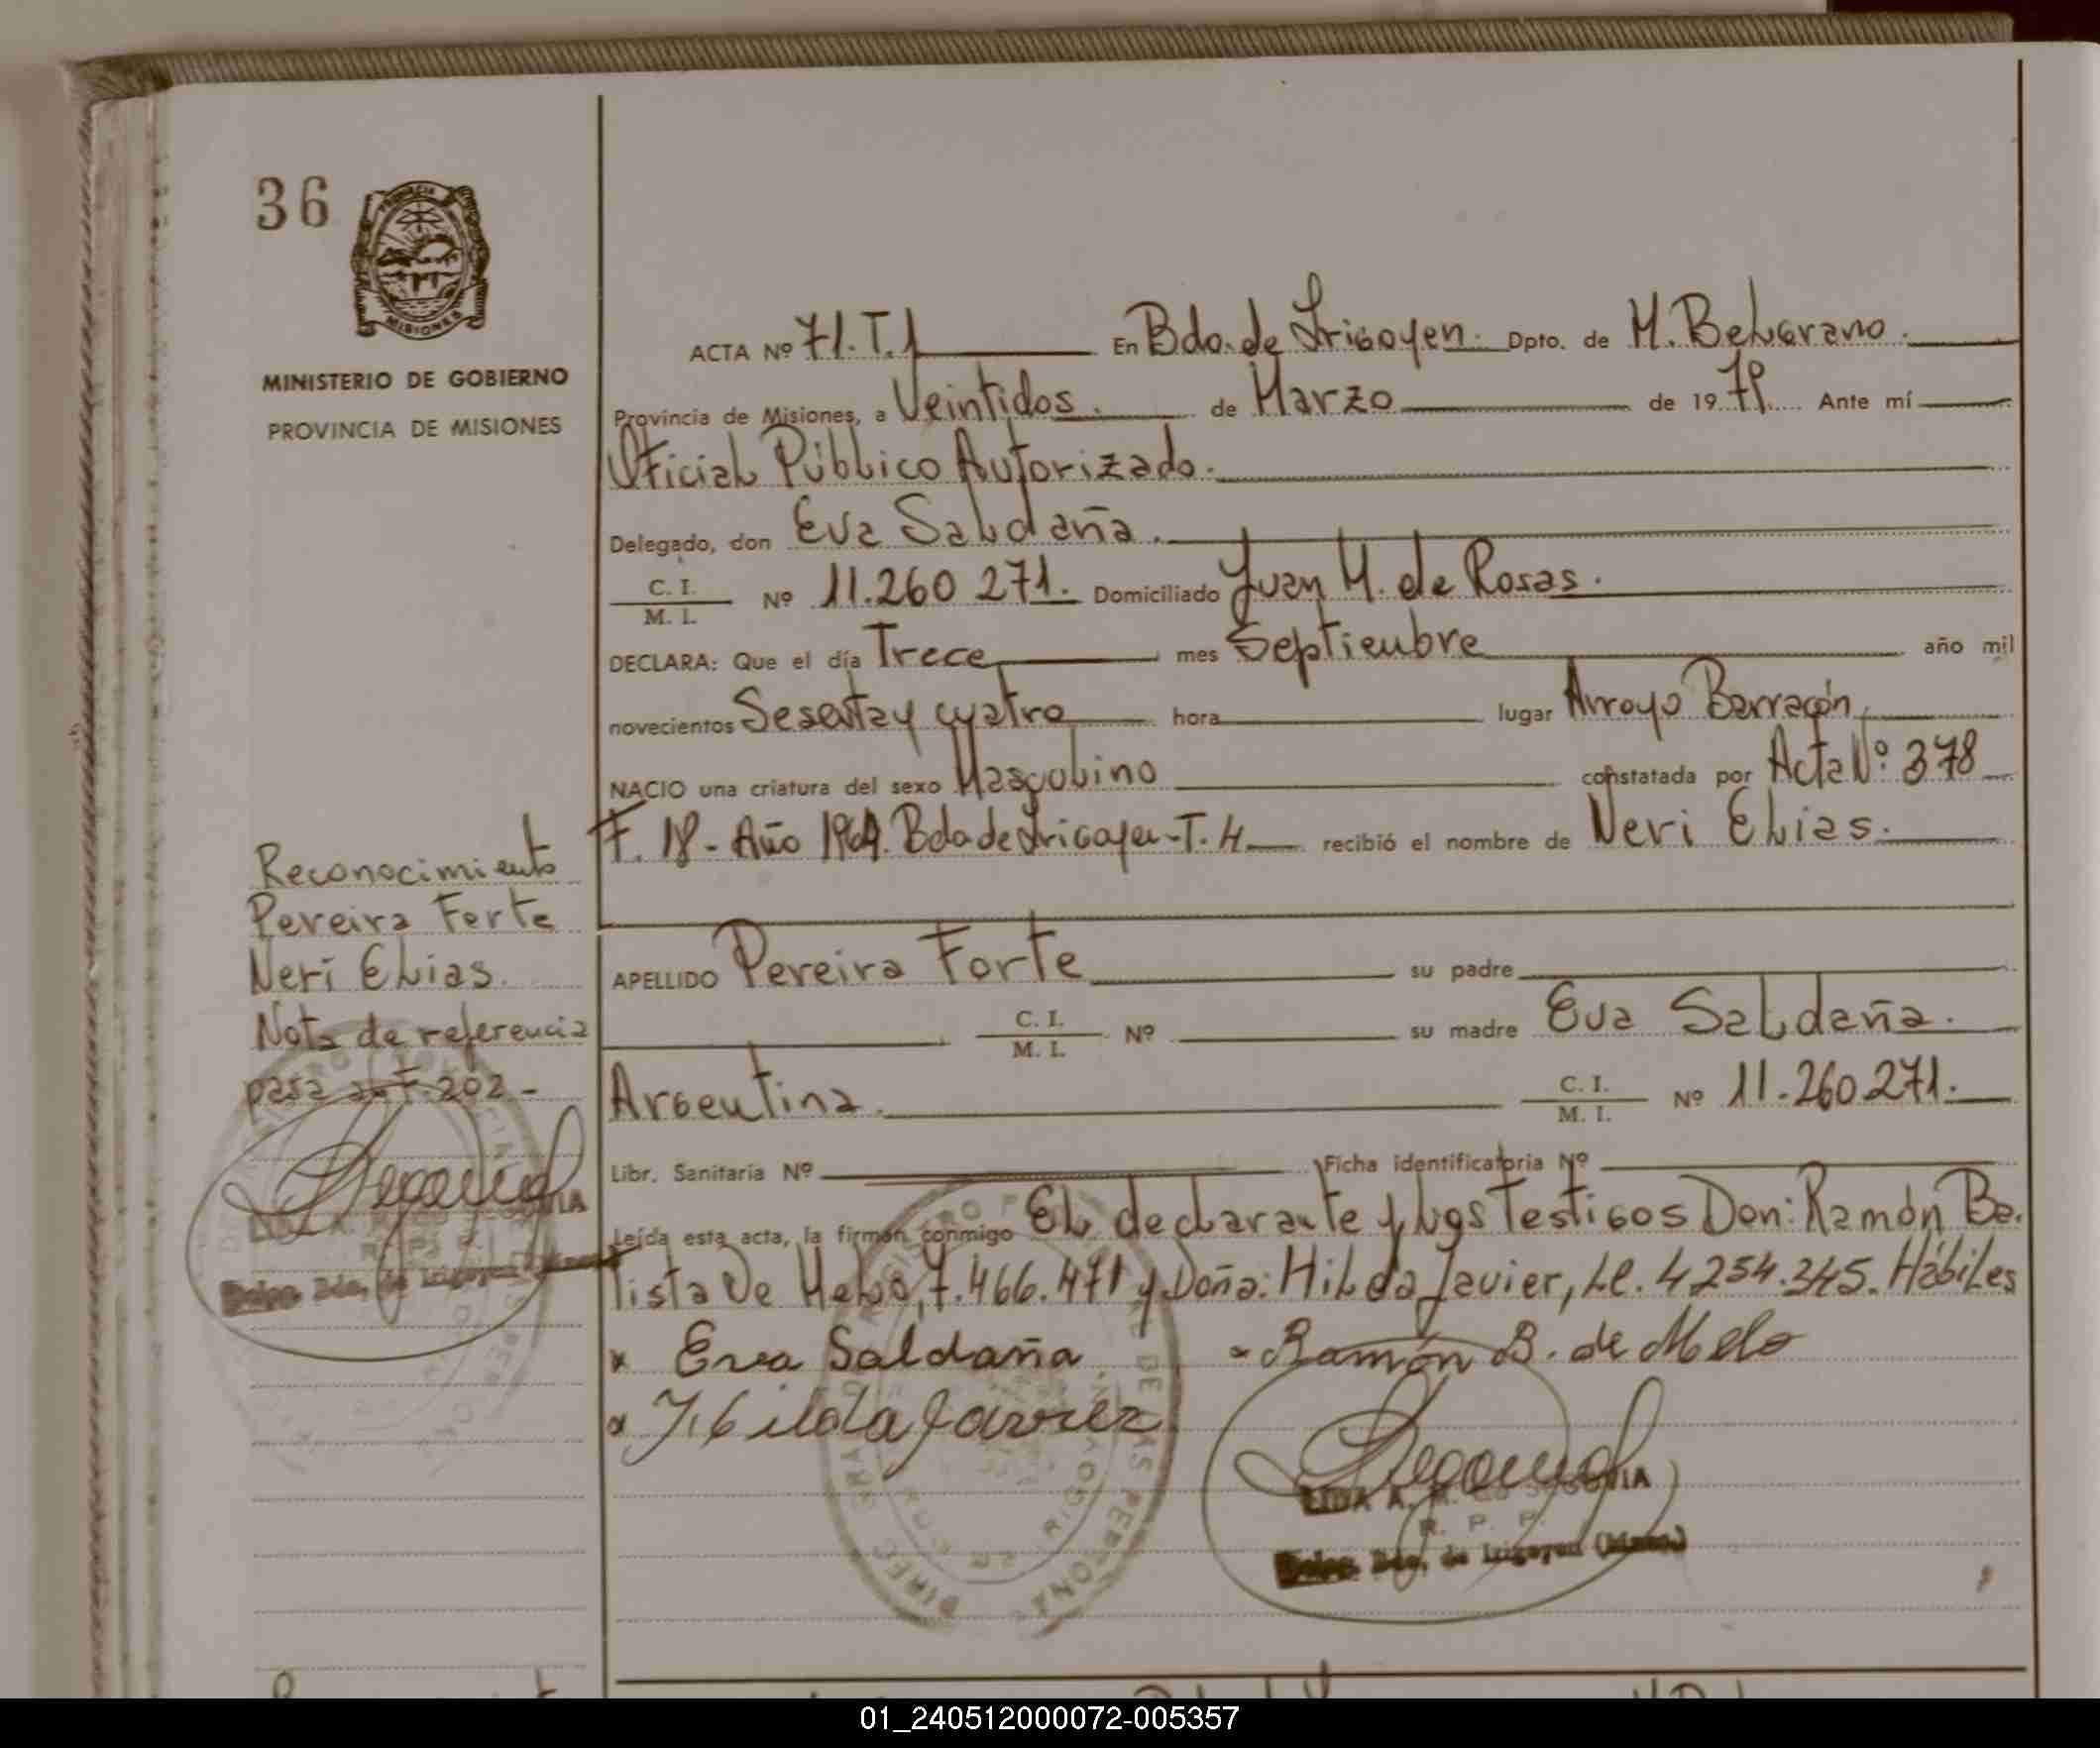 36
MISIONES
MINISTERIO DE GOBIERNO
PROVINCIA DE MISIONES
ACTA Nº 71. T. I En Bdo. de Irigoyen. Dpto. de M. Belgrano.
Provincia de Misiones, a Veintidos. de Marzo de 1979. Ante mí
Oficial Público Autorizado.
Delegado, don Eva Saldaña.
C. I.
M. I. Nº 11.260 271. Domiciliado Juan M. de Rosas.
DECLARA: Que el día Trece mes Septiembre año mil
novecientos Sesenta y cuatro hora lugar Arroyo Barracón,
NACIO una criatura del sexo Masculino constatada por Acta Nº: 378
F. 18 - Año 1964. Bdo de Irigoyen - T. 4. recibió el nombre de Neri Elias.
Reconocimiento
Pereira Forte
Neri Elias.
Nota de referencia
pasa al F. 202 -
APELLIDO Pereira Forte su padre
C. I.
M. I. Nº su madre Eva Saldaña.
Argentina. C. I.
M. I. Nº 11.260.271.
Libr. Sanitaria Nº Ficha identificatoria Nº
Leída esta acta, la firman conmigo El declarante y los Testigos Don: Ramón Ba.
tista De Melo, 7.466.471 y Doña: Hilda Javier, Lc. 4 254.345. Hábiles
x Eva Saldaña x Ramón B. de Melo
x Hilda Javier
LIDA A. SEGOVIA
R. P. P.
Bdo. de Irigoyen (Mnes.)
01_240512000072-005357